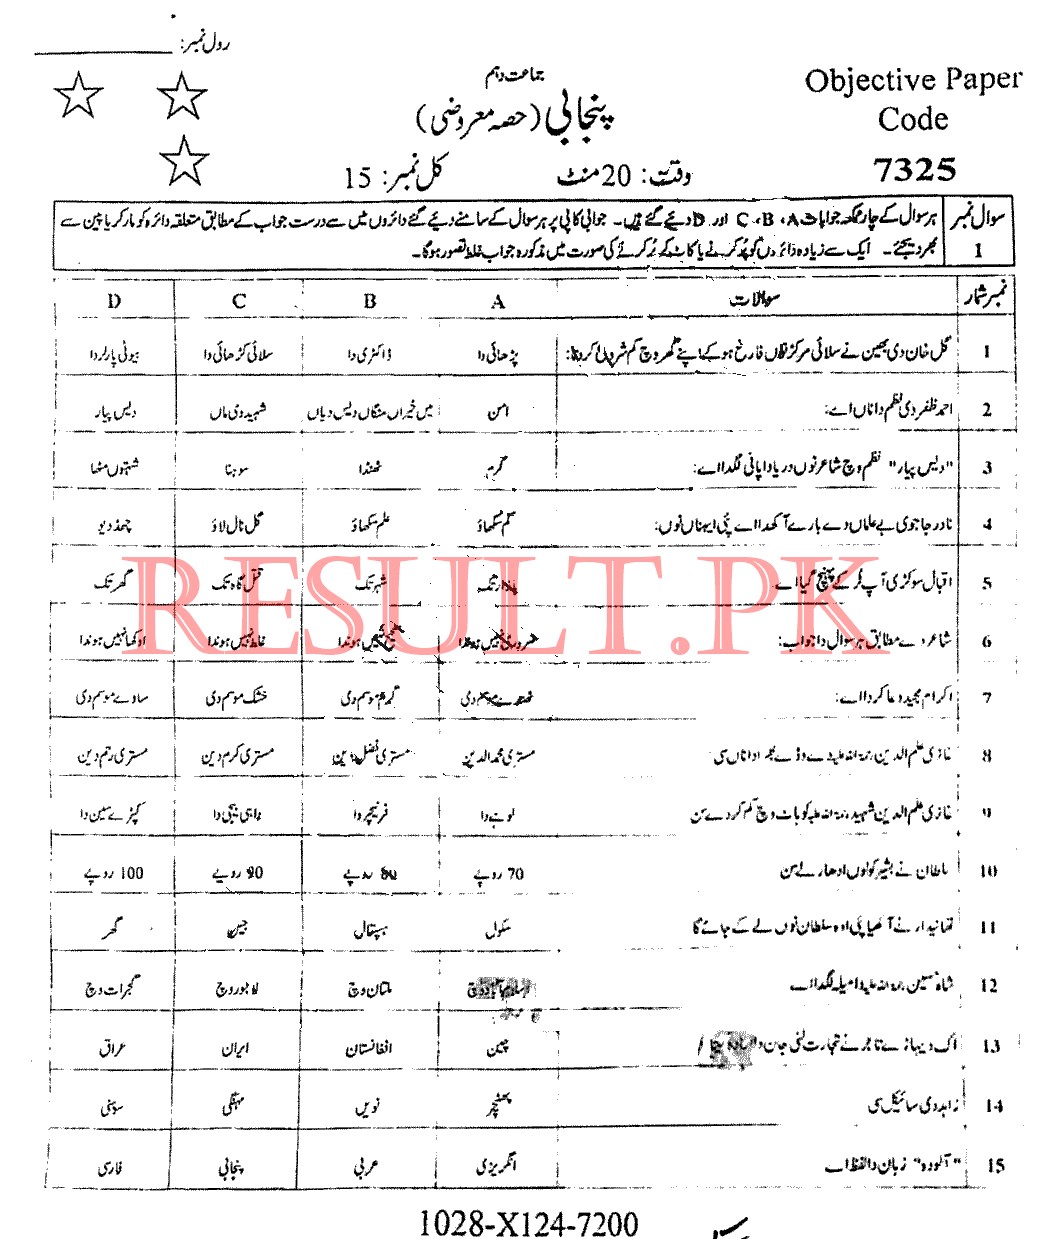 رول نمبر:
جماعت دہم
Objective Paper
پنجابی (حصہ معروضی)
Code
وقت: 20 منٹ کل نمبر: 15
7325
سوال نمبر 1
ہر سوال کے چار ممکنہ جوابات A، B، C اور D دیئے گئے ہیں۔ جوابی کاپی پر ہر سوال کے سامنے دیئے گئے دائروں میں سے درست جواب کے مطابق متعلقہ دائرہ کو مارکر یا پین سے
بھر دیجئے۔ ایک سے زیادہ دائروں کو پُر کرنے یا کاٹ کر پُر کرنے کی صورت میں مذکورہ جواب غلط تصور ہوگا۔
نمبر شمار سوالات A B C D
1 گل خان دی بھین نے سلائی مرکز توں فارغ ہو کے اپنے گھر وچ کم شروع کر دتا: پڑھائی دا ڈاکٹری دا سلائی کڑھائی دا بیوٹی پارلر دا
2 احمد ظفر دی نظم دا ناں اے: امن میں خیراں منگاں دیس دیاں شہید دی ماں دیس پیار
3 "دیس پیار" نظم وچ شاعر نوں دریا دا پانی لگدا اے: گرم ٹھنڈا سوہنا شہتوں مٹھا
4 نادر جاجوی بے علماں دے بارے آکھدا اے پئی ایہناں نوں: کم سکھاؤ علم سکھاؤ گل نال لاؤ چھڈ دیو
5 اقبال سوکڑی آپ ٹُر کے پہنچ گیا اے شہر تک قتل گاہ تک گھر تک
6 شاعر دے مطابق ہر سوال دا جواب: ضروری نہیں ہوندا صحیح نہیں ہوندا غلط نہیں ہوندا اوکھا نہیں ہوندا
7 اکرام مجید دعا کردا اے: موسم دی گرم موسم دی خشک موسم دی ساوے موسم دی
8 غازی علم الدین رحمۃ اللہ علیہ دے وڈے بھرا دا ناں سی: مستری محمد الدین مستری فضل دین مستری کرم دین مستری رحم دین
9 غازی علم الدین شہید رحمۃ اللہ علیہ کوہاٹ وچ کم کردے سن لوہے دا فرنیچر دا واہی بیجی دا کپڑے سین دا
10 سلطان نے بشیر کولوں ادھار لے سن 70 روپے 80 روپے 90 روپے 100 روپے
11 تھانیدار نے آکھیا پئی اوہ سلطان نوں لے کے جائے گا سکول ہسپتال جیل گھر
12 شاہ حسین رحمۃ اللہ علیہ دا میلہ لگدا اے اسلام آباد وچ ملتان وچ لاہور وچ گجرات وچ
13 اک دیہاڑے تاجر نے تجارت لئی جان دا چین افغانستان ایران عراق
14 زاہد دی سائیکل سی پھٹیچر نویں مہنگی سوہنی
15 "آلودہ" زبان دا لفظ اے انگریزی عربی پنجابی فارسی
RESULT.PK
1028-X124-7200